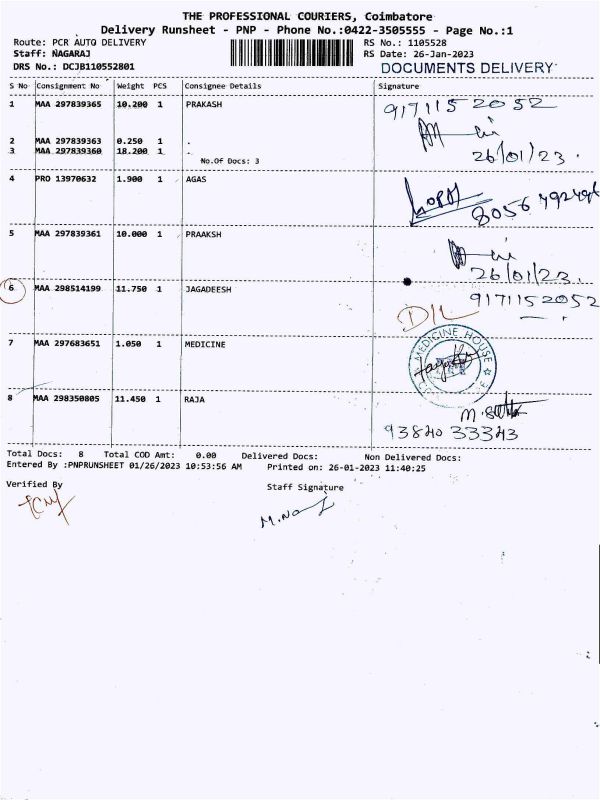 THE PROFESSIONAL COURIERS, Coimbatore
Delivery Runsheet - PNP - Phone No.:0422-3505555 - Page No.:1
Route: PCR AUTO DELIVERY RS No.: 1105528
Staff: NAGARAJ RS Date: 26-Jan-2023
DRS No.: DCJB110552801 DOCUMENTS DELIVERY
S No Consignment No Weight PCS Consignee Details Signature
1 MAA 297839365 10.200 1 PRAKASH 9171152052
2 MAA 297839363 0.250 1 .
3 MAA 297839360 18.200 1 . 26/01/23.
No.Of Docs: 3
4 PRO 13970632 1.900 1 AGAS
5 MAA 297839361 10.000 1 PRAAKSH
26/01/23.
6 MAA 298514199 11.750 1 JAGADEESH 9171152052
D/L
7 MAA 297683651 1.050 1 MEDICINE MEDICINE HOUSE
8 MAA 298350805 11.450 1 RAJA
93840 33343
Total Docs: 8 Total COD Amt: 0.00 Delivered Docs: Non Delivered Docs:
Entered By :PNPRUNSHEET 01/26/2023 10:53:56 AM Printed on: 26-01-2023 11:40:25
Verified By Staff Signature